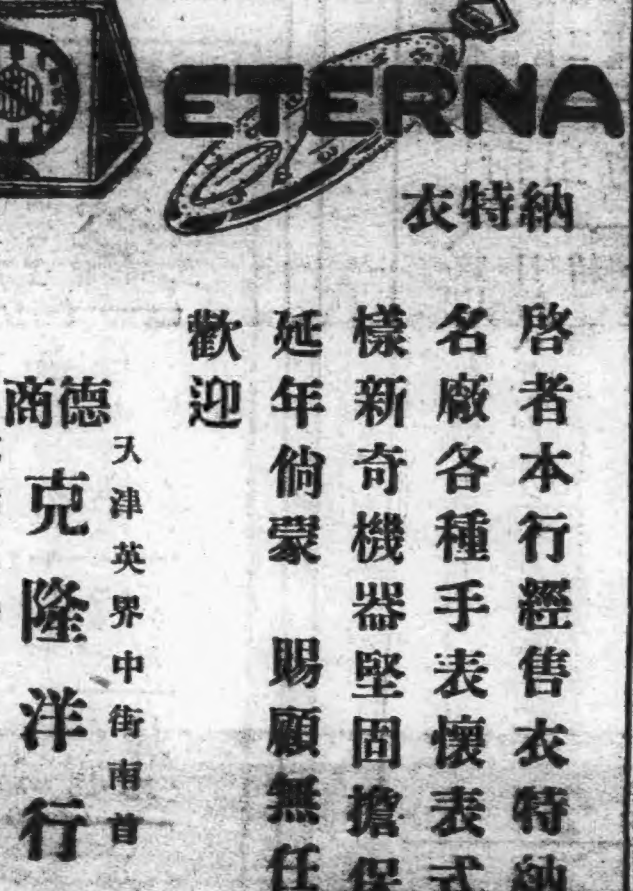 ETERNA
衣特納
啓者本行經售衣特納
名廠各種手表懷表式
樣新奇機器堅固擔保
延年倘蒙 賜顧無任
歡迎
天津英界中街南首
德商
克隆洋行